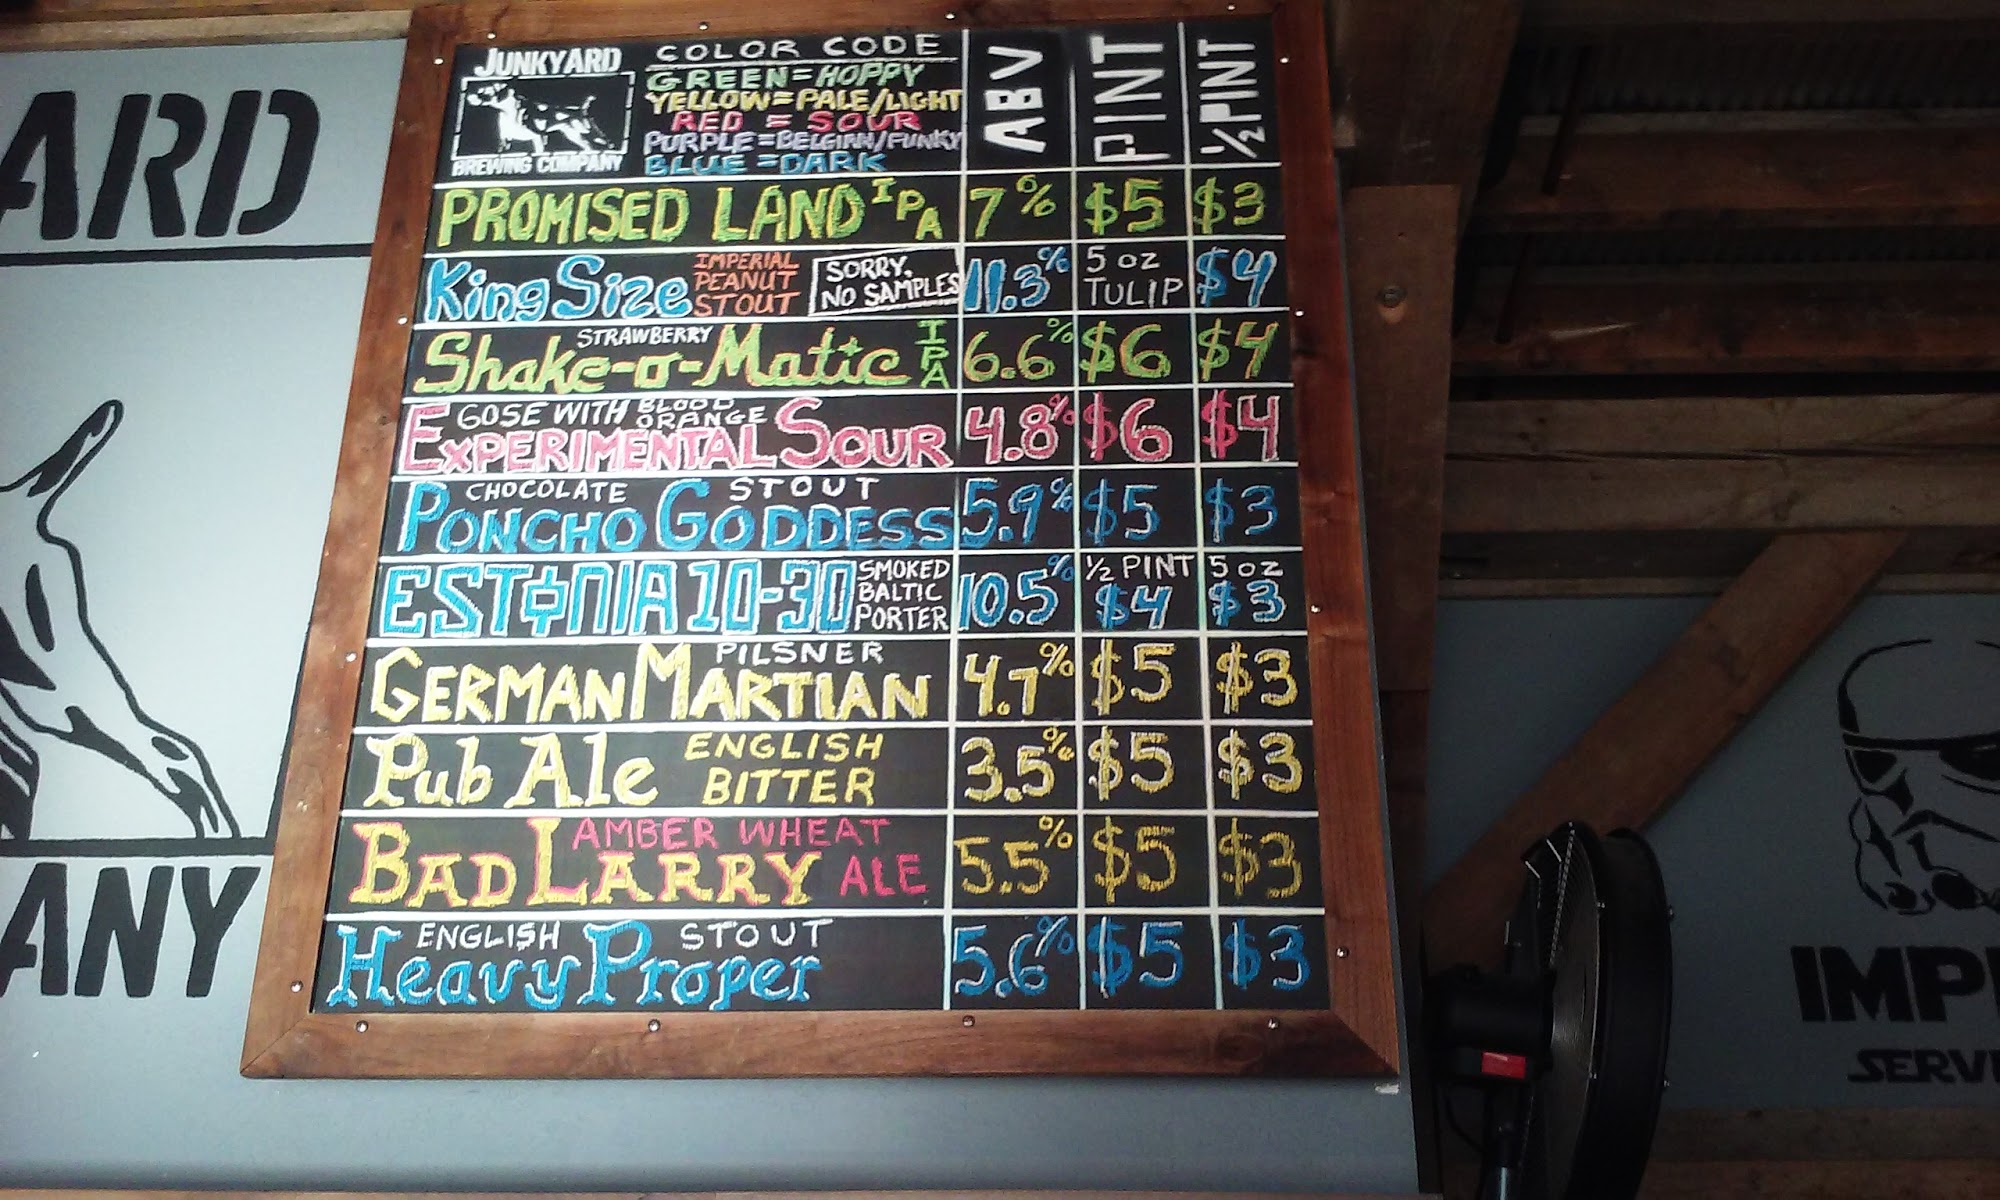 ARD
ANY
JUNKYARD
BREWING COMPANY
COLOR CODE
GREEN=HOPPY
YELLOW=PALE/LIGHT
RED = SOUR
PURPLE=BELGIAN/FUNKY
BLUE =DARK
ABV PINT ½PINT
PROMISED LAND IPA 7% $5 $3
King Size IMPERIAL PEANUT STOUT SORRY, NO SAMPLES 11.3% 5 oz TULIP $4
STRAWBERRY
Shake-o-Matic IPA 6.6% $6 $4
GOSE WITH BLOOD ORANGE
EXPERIMENTAL SOUR 4.8% $6 $4
CHOCOLATE STOUT
PONCHO GODDESS 5.9% $5 $3
ESTONIA 10-30 SMOKED BALTIC PORTER 10.5% ½ PINT $4 5 oz $3
PILSNER
GERMAN MARTIAN 4.7% $5 $3
Pub Ale ENGLISH BITTER 3.5% $5 $3
AMBER WHEAT
BAD LARRY ALE 5.5% $5 $3
ENGLISH STOUT
Heavy Proper 5.6% $5 $3
IMP
SERVI